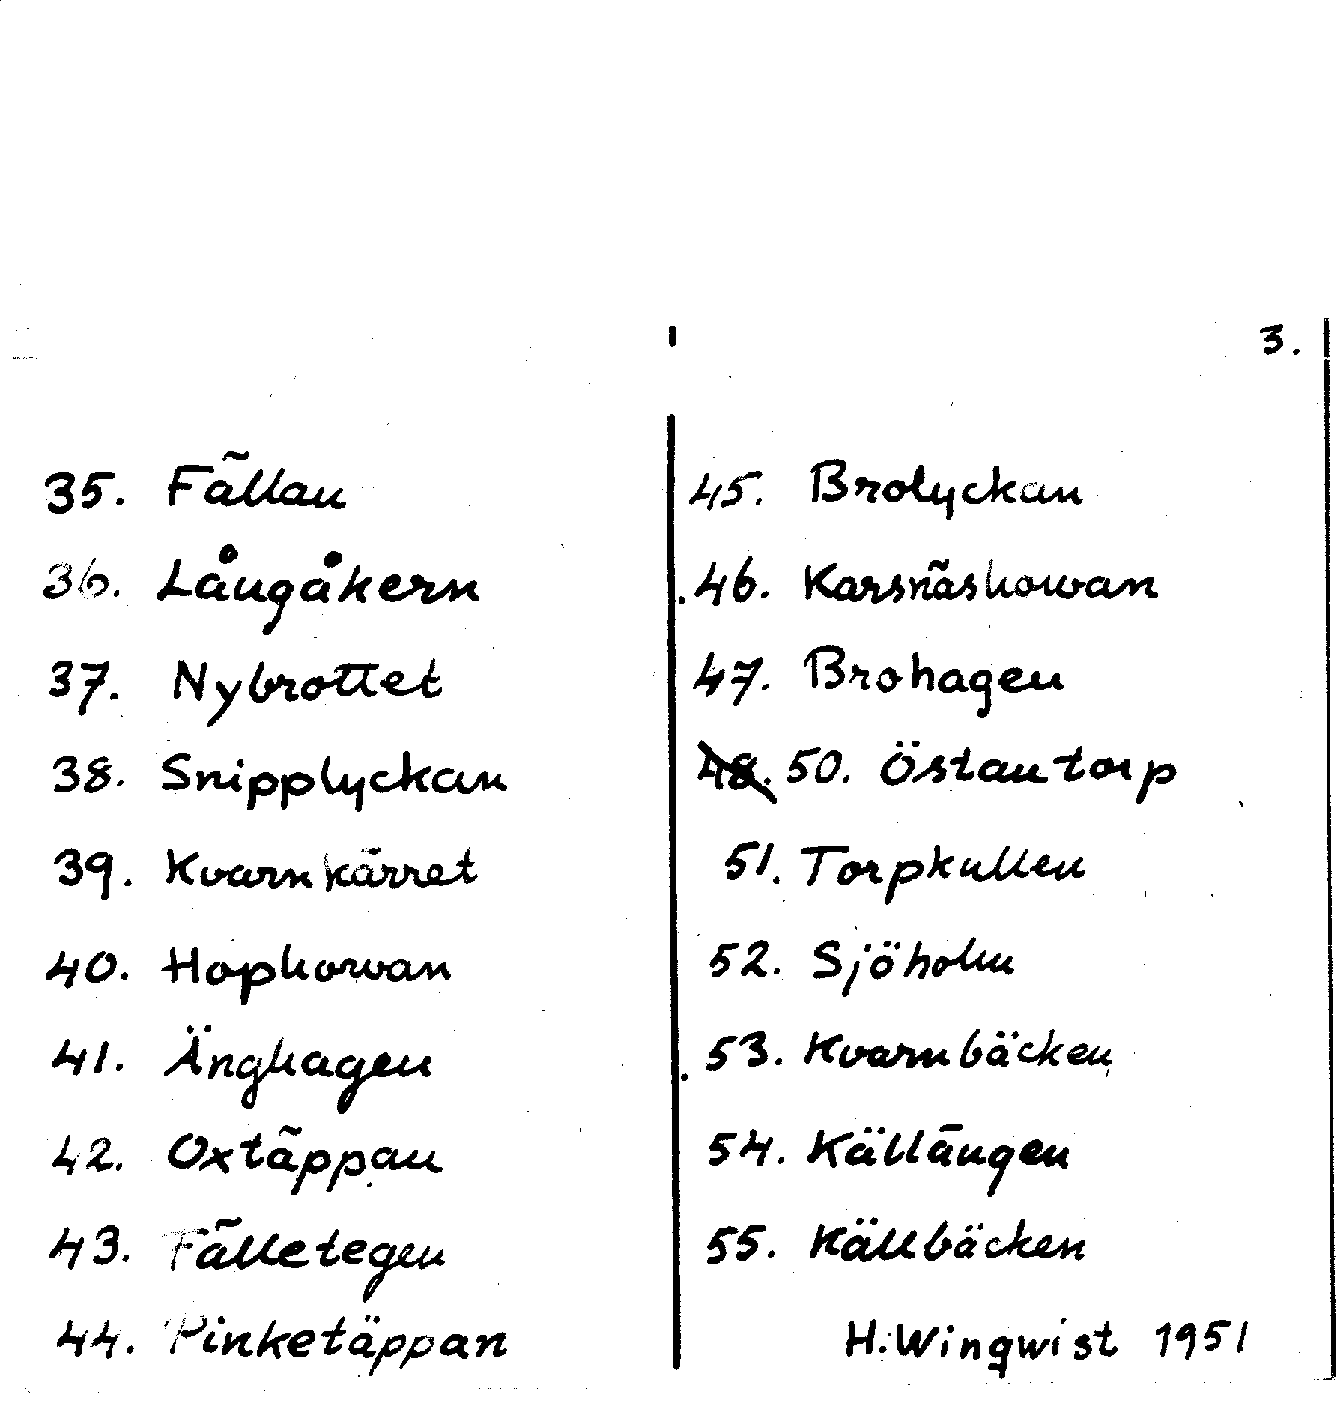 3.
35. Fällan
36. Långåkern
37. Nybrottet
38. Snipplyckan
39. Kvarnkärret
40. Hophowan
41. Änghagen
42. Oxtäppan
43. Fälletegen
44. Pinketäppan
45. Brolyckan
46. Karsnäshowan
47. Brohagen
48. 50. Östantorp
51. Torpkullen
52. Sjöholm
53. Kvarnbäcken
54. Källängen
55. Källbäcken
H. Wingwist 1951